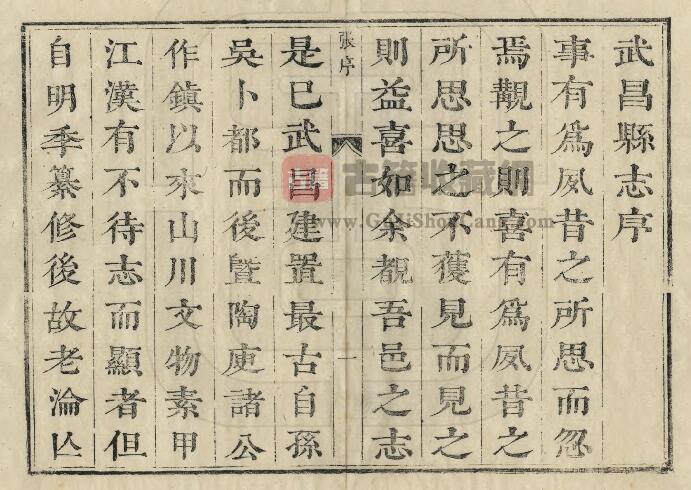 武昌縣志序
事有爲夙昔之所思而忽
焉觀之則喜有爲夙昔之
所思思之不獲見而見之
則益喜如余覩吾邑之志
張序
一
是已武昌建置最古自孫
吳卜都而後曁陶庾諸公
作鎮以來山川文物素甲
江漢有不待志而顯者但
自明季纂修後故老淪亾
古籍
古籍收藏網
www.GujiShouCang.com